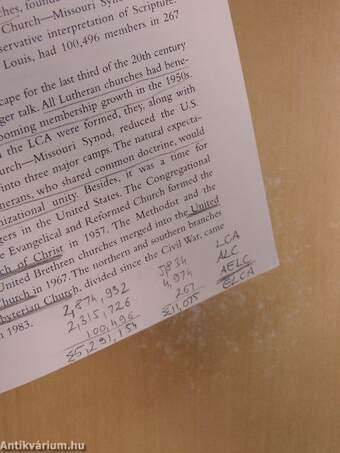 Church—Missouri Synod
servative interpretation of Scripture.
Louis, had 100,496 members in 267
cape for the last third of the 20th century
ger talk. All Lutheran churches had bene-
ooming membership growth in the 1950s.
the LCA were formed, they, along with
urch—Missouri Synod, reduced the U.S.
into three major camps. The natural expecta-
nerans, who shared common doctrine, would
nizational unity. Besides, it was a time for
gers in the United States. The Congregational
e Evangelical and Reformed Church formed the
ch of Christ in 1957. The Methodist and the
United Brethren churches merged into the United
Church in 1967. The northern and southern branches
byterian Church, divided since the Civil War, came
n 1983.
2,874,932
2,315,726
100,496
Σ5,291,154
5834
4,974
267
Σ11,075
LCA
ALC
AELC
ELCA
Antikvárium.hu